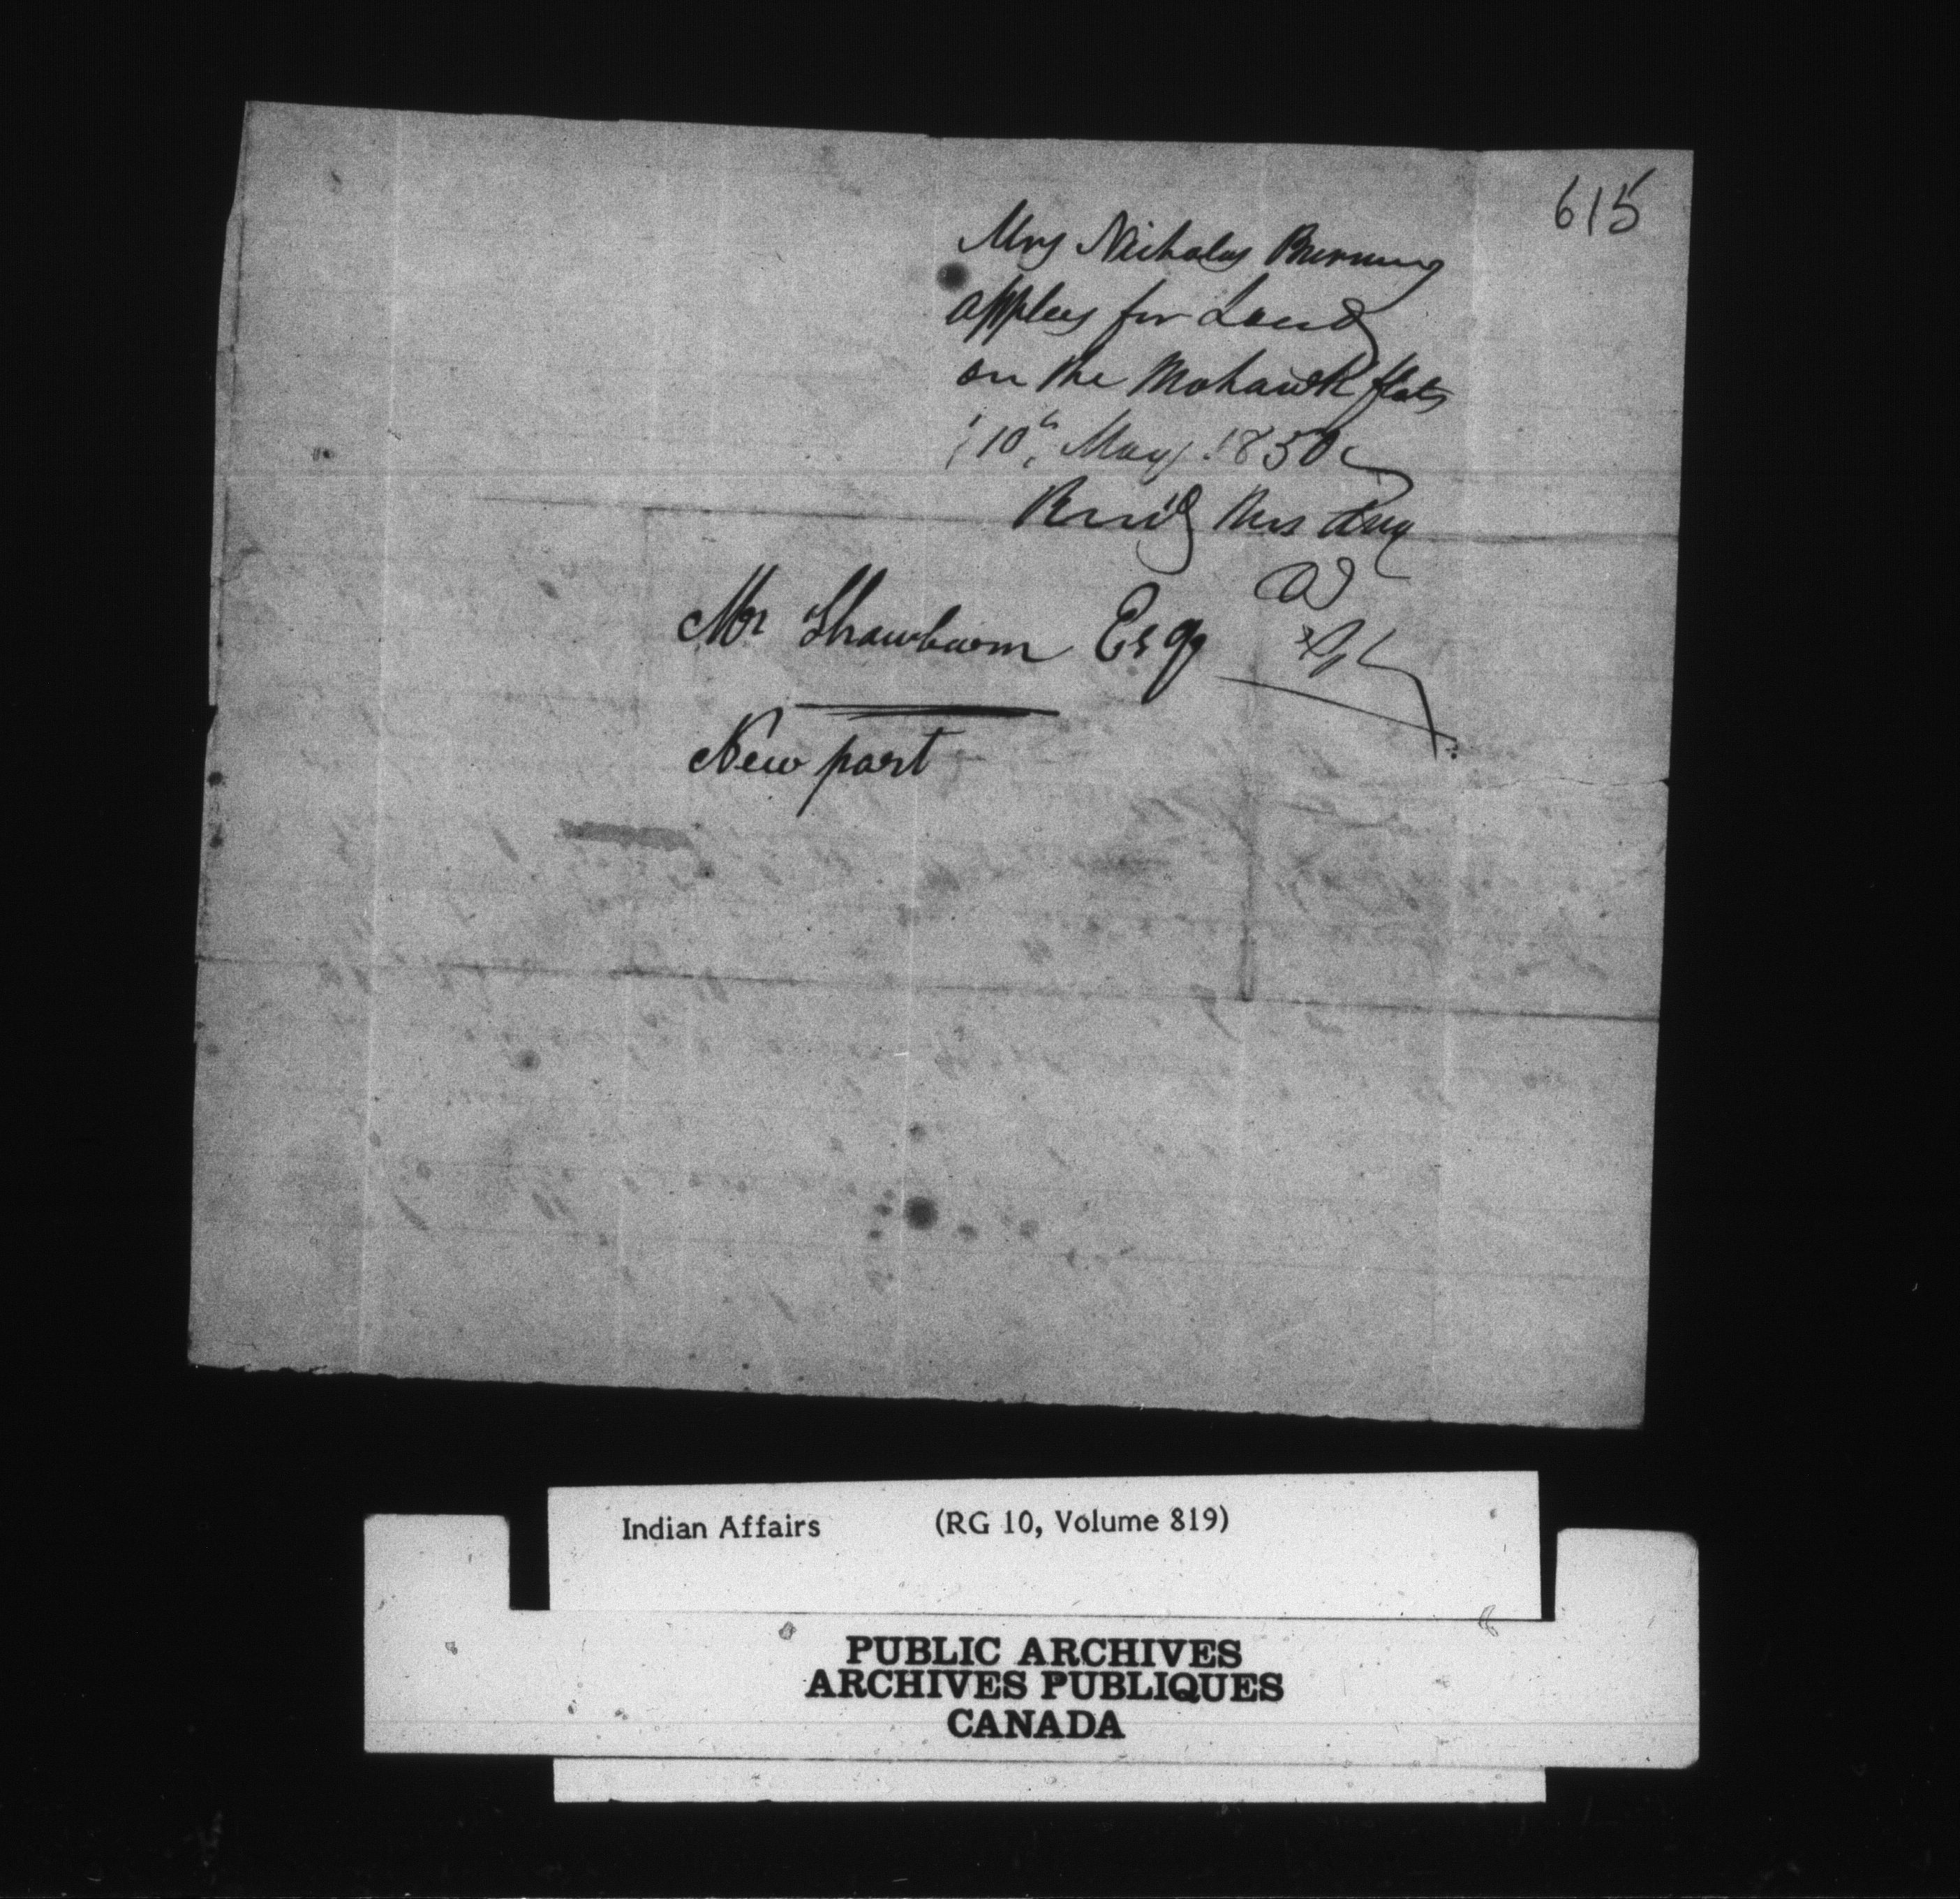 615
Mrs Nicholas Burning
applies for Land
on the Mohawk flats
10th May 1850
Recd this day
Mr Thawbarn Esqr
New port
Indian Affairs (RG 10, Volume 819)
PUBLIC ARCHIVES
ARCHIVES PUBLIQUES
CANADA